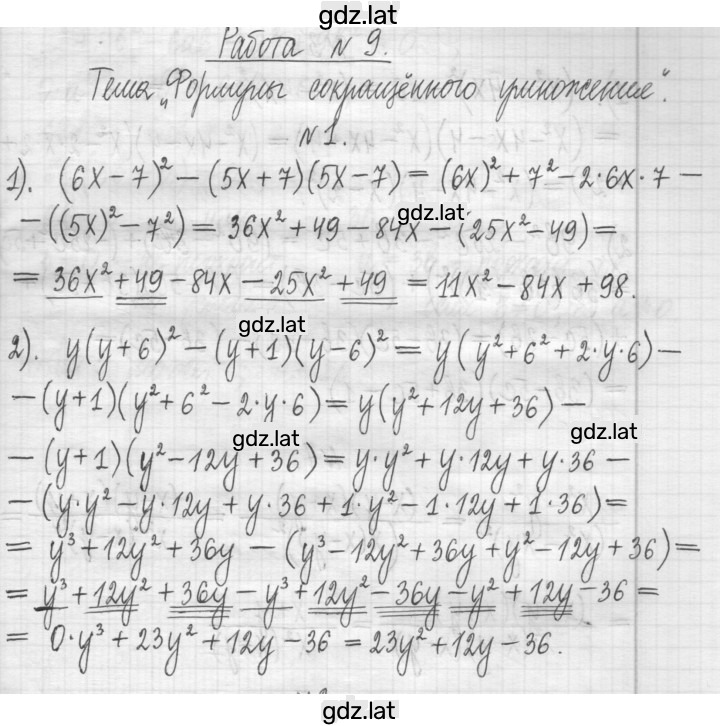 gdz.lat
Работа № 9.
Тема „Формулы сокращённого умножения".
№ 1.
1). (6x-7)² - (5x+7)(5x-7) = (6x)² + 7² - 2·6x·7 -
- ((5x)² - 7²) = 36x² + 49 - 84x - (25x² - 49) =
gdz.lat
= 36x² + 49 - 84x - 25x² + 49 = 11x² - 84x + 98.
gdz.lat
2). y(y+6)² - (y+1)(y-6)² = y(y² + 6² + 2·y·6) -
- (y+1)(y² + 6² - 2·y·6) = y(y² + 12y + 36) -
gdz.lat
gdz.lat
- (y+1)(y² - 12y + 36) = y·y² + y·12y + y·36 -
- (y·y² - y·12y + y·36 + 1·y² - 1·12y + 1·36) =
= y³ + 12y² + 36y - (y³ - 12y² + 36y + y² - 12y + 36) =
= y³ + 12y² + 36y - y³ + 12y² - 36y - y² + 12y - 36 =
= 0·y³ + 23y² + 12y - 36 = 23y² + 12y - 36.
gdz.lat